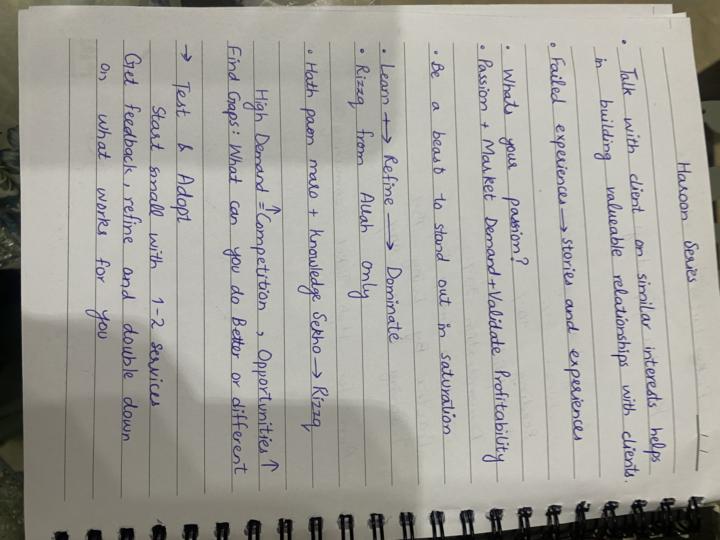 Haroon Series
• Talk with client on similar interests helps
in building valueable relationships with clients.
• Failed experiences → stories and experiences
• Whats your passion?
• Passion + Market Demand + Validate Profitability
• Be a beast to stand out in saturation
• Learn → Refine → Dominate
• Rizzq from Allah only
• Hath paon maro + Knowledge Sekho → Rizzq
High Demand = ↑Competition, Opportunities ↑
Find Gaps: What can you do Better or different
→ Test & Adapt
Start small with 1-2 services
Get feedback, refine and double down
on what works for you